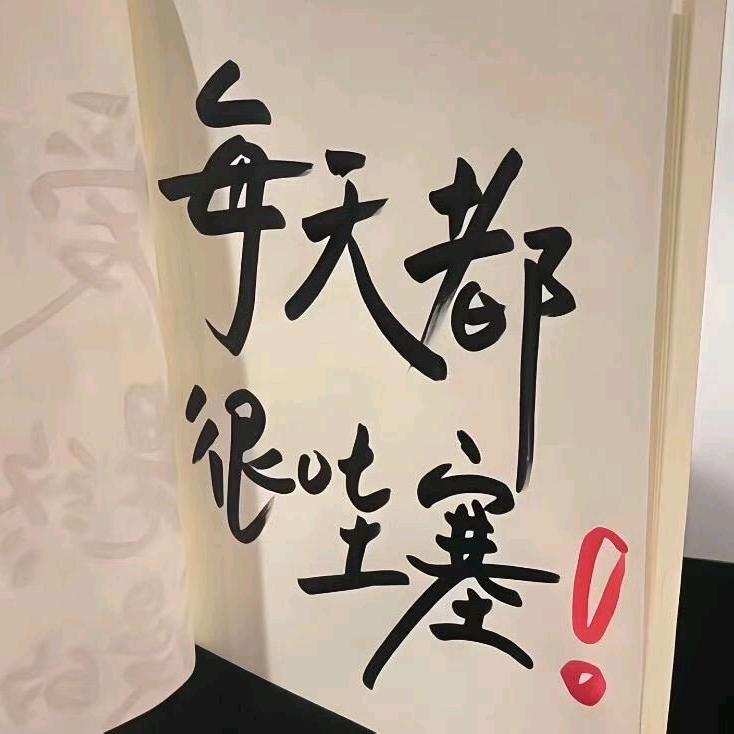 每天都
很哇塞！